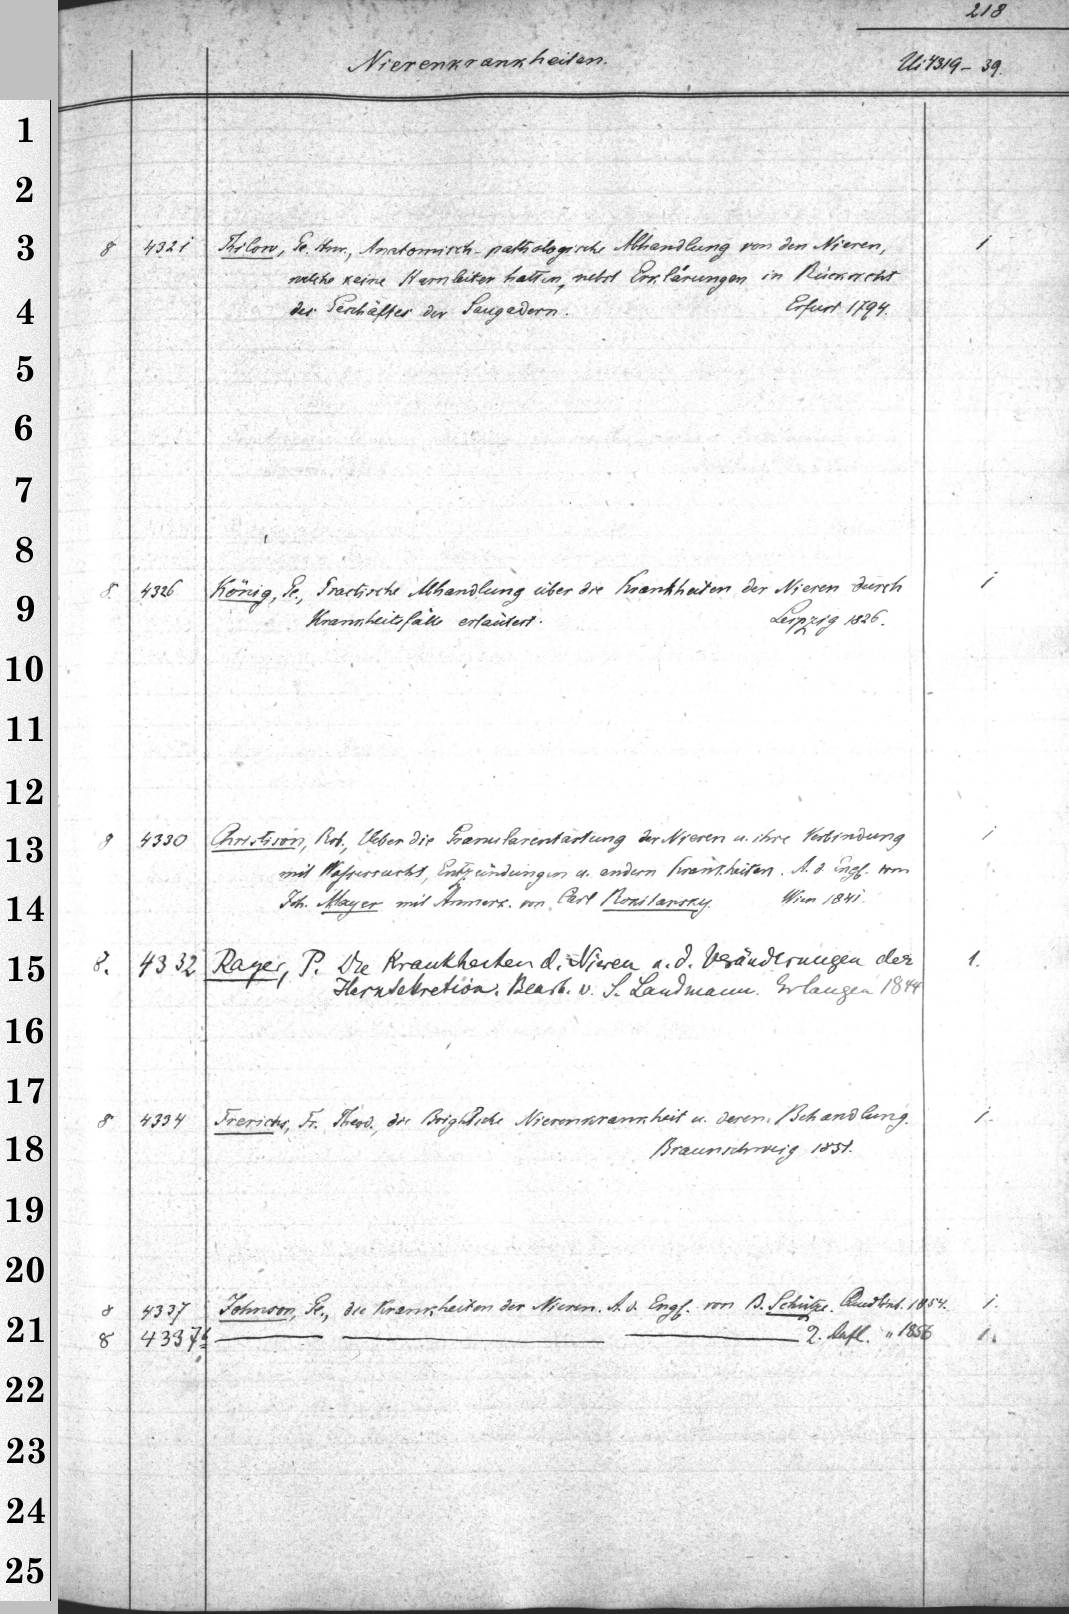 218
Nierenkrankheiten.
Ui 4319-39.
1
2
3
4
5
6
7
8
9
10
11
12
13
14
15
16
17
18
19
20
21
22
23
24
25
8 4321 Thilow, Ge. Hnr., Anatomisch-pathologische Abhandlung von den Nieren, 1
welche keine Harnleiter hatten, nebst Erklärungen in Rücksicht
des Geschäftes der Saugadern. Erfurt 1794.
8. 4326 König, Ge., Practische Abhandlung über die Krankheiten der Nieren durch 1
Krankheitsfälle erläutert. Leipzig 1826.
8 4330 Christison, Rob., Ueber die Granularentartung der Nieren u. ihre Verbindung 1
mit Wassersucht, Entzündungen u. andern Krankheiten. A. d. Engl. von
Joh. Mayer mit Anmerk. von Carl Rokitansky. Wien 1841.
8. 4332 Rayer, P. Die Krankheiten d. Nieren u. d. Veränderungen der 1.
Harnsekretion. Bearb. v. S. Landmann. Erlangen 1844
8 4334 Frerichs, Fr. Theod., die Brightsche Nierenkrankheit u. deren Behandlung. 1.
Braunschweig 1851.
8 4337 Johnson, Ge., die Krankheiten der Nieren. A. d. Engl. von B. Schütze. Quedlinb. 1854. 1.
8 4337 2. Aufl. " 1856 1.